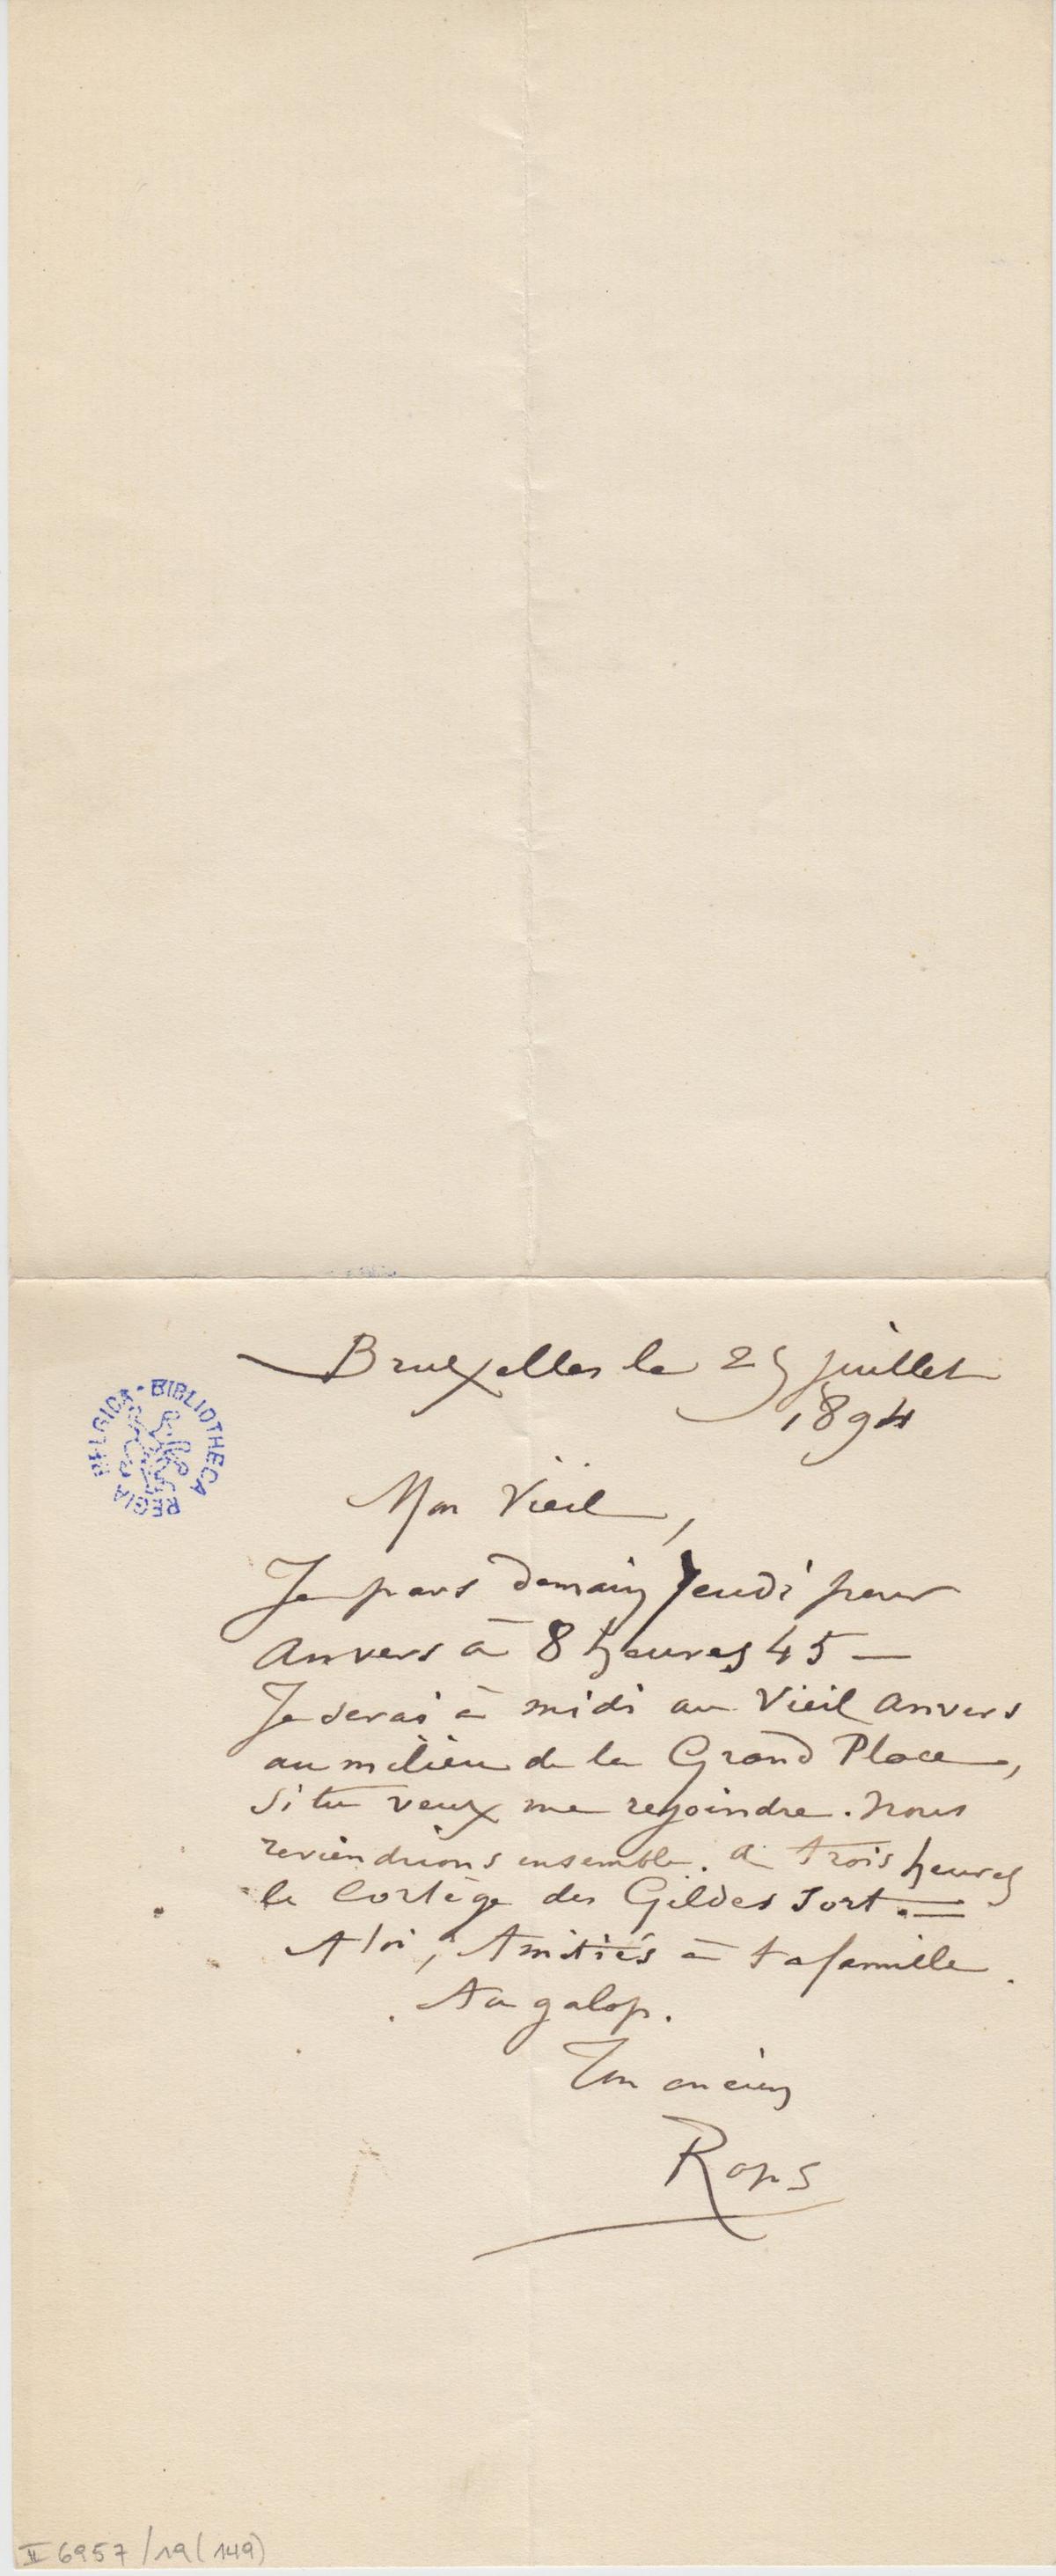 Bruxelles le 25 juillet
1894
BIBLIOTHECA REGIA BELGICA
Mon Vieil,
Je pars demain Jeudi pour
Anvers à 8 heures 45 —
Je serai à midi au Vieil Anvers
au milieu de la Grand Place,
si tu veux me rejoindre. Nous
reviendrions ensemble. A trois heures
le Cortège des Gildes sort. =
A toi, Amitiés à ta famille.
Au galop.
Ton ancien
Rops
II 6957/19(149)